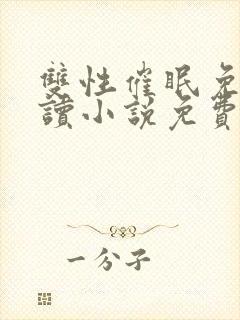 雙性催眠免
讀小說免費
一分子